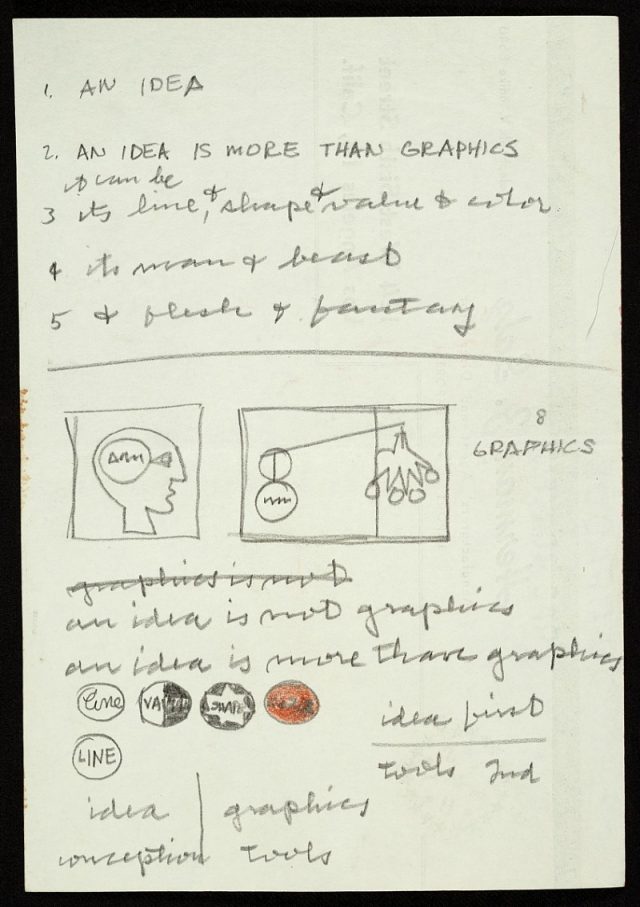 1. AN IDEA
2. AN IDEA IS MORE THAN GRAPHICS
it can be
3 its line, & shape & value & color
4 its man & beast
5 & flesh & fantasy
8
GRAPHICS
graphics is not
an idea is not graphics
an idea is more than graphics
Line VALUE SHAPE
idea first
LINE
tools 2nd
idea | graphics
conception tools